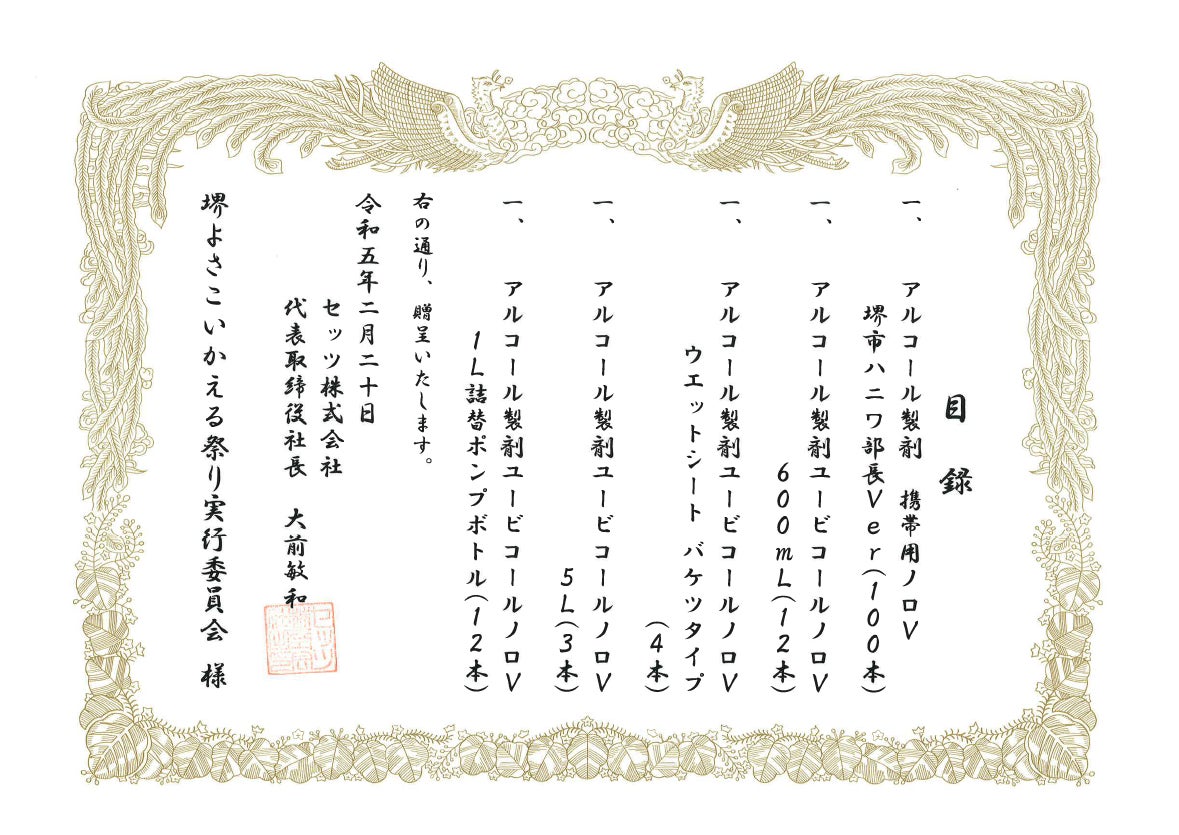 目録
一、 アルコール製剤 携帯用ノロV
堺市ハニワ部長Ver(100本)
一、 アルコール製剤ユービコールノロV
600mL(12本)
一、 アルコール製剤ユービコールノロV
ウエットシート バケツタイプ
(4本)
一、 アルコール製剤ユービコールノロV
5L(3本)
一、 アルコール製剤ユービコールノロV
1L詰替ポンプボトル(12本)
右の通り、贈呈いたします。
令和五年二月二十日
セッツ株式会社
代表取締役社長 大前敏和
堺よさこいかえる祭り実行委員会 様